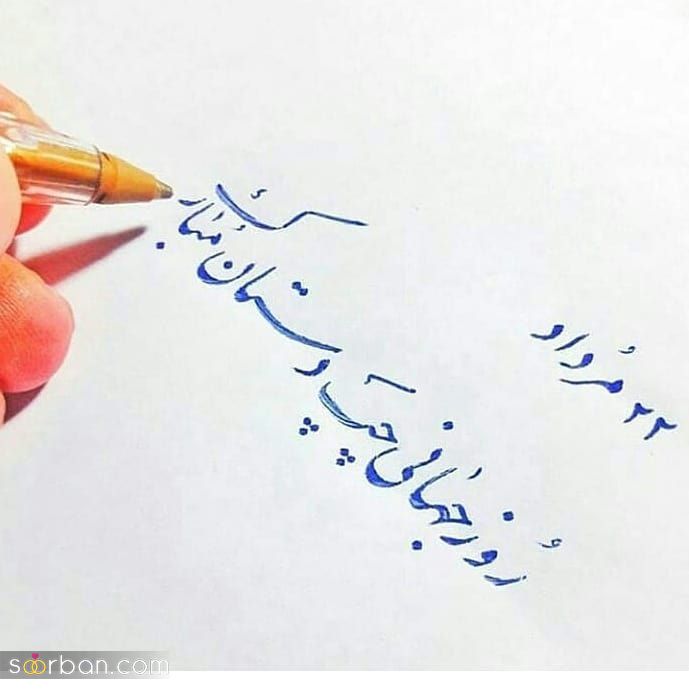 ۲۲ مُرداد
رُوز جهانی چپ دستان مُبارک
soorban.com